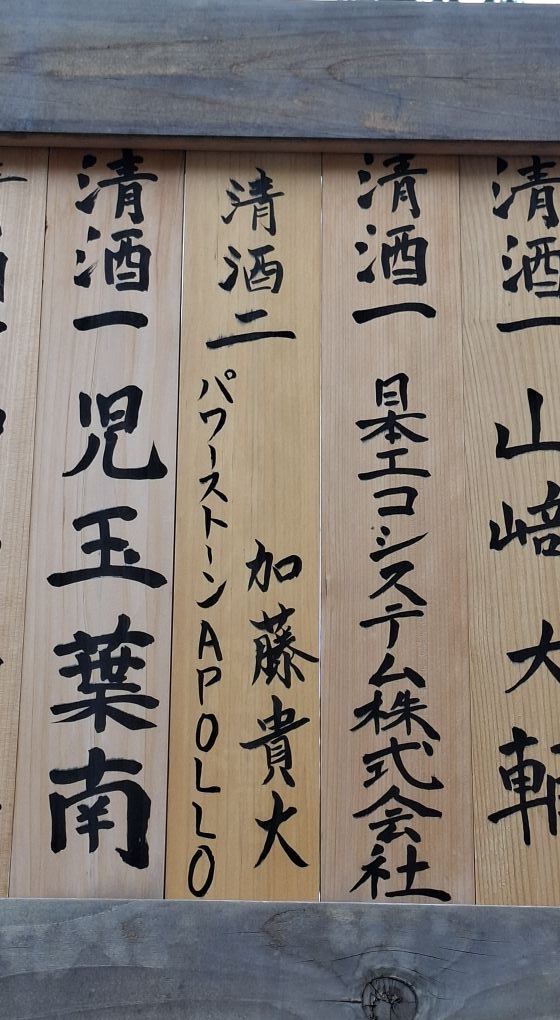 清酒一
山﨑大
清酒一
日本エコシステム株式会社
清酒二
加藤貴大
パワーストーンAPOLLO
清酒一
児玉葉南